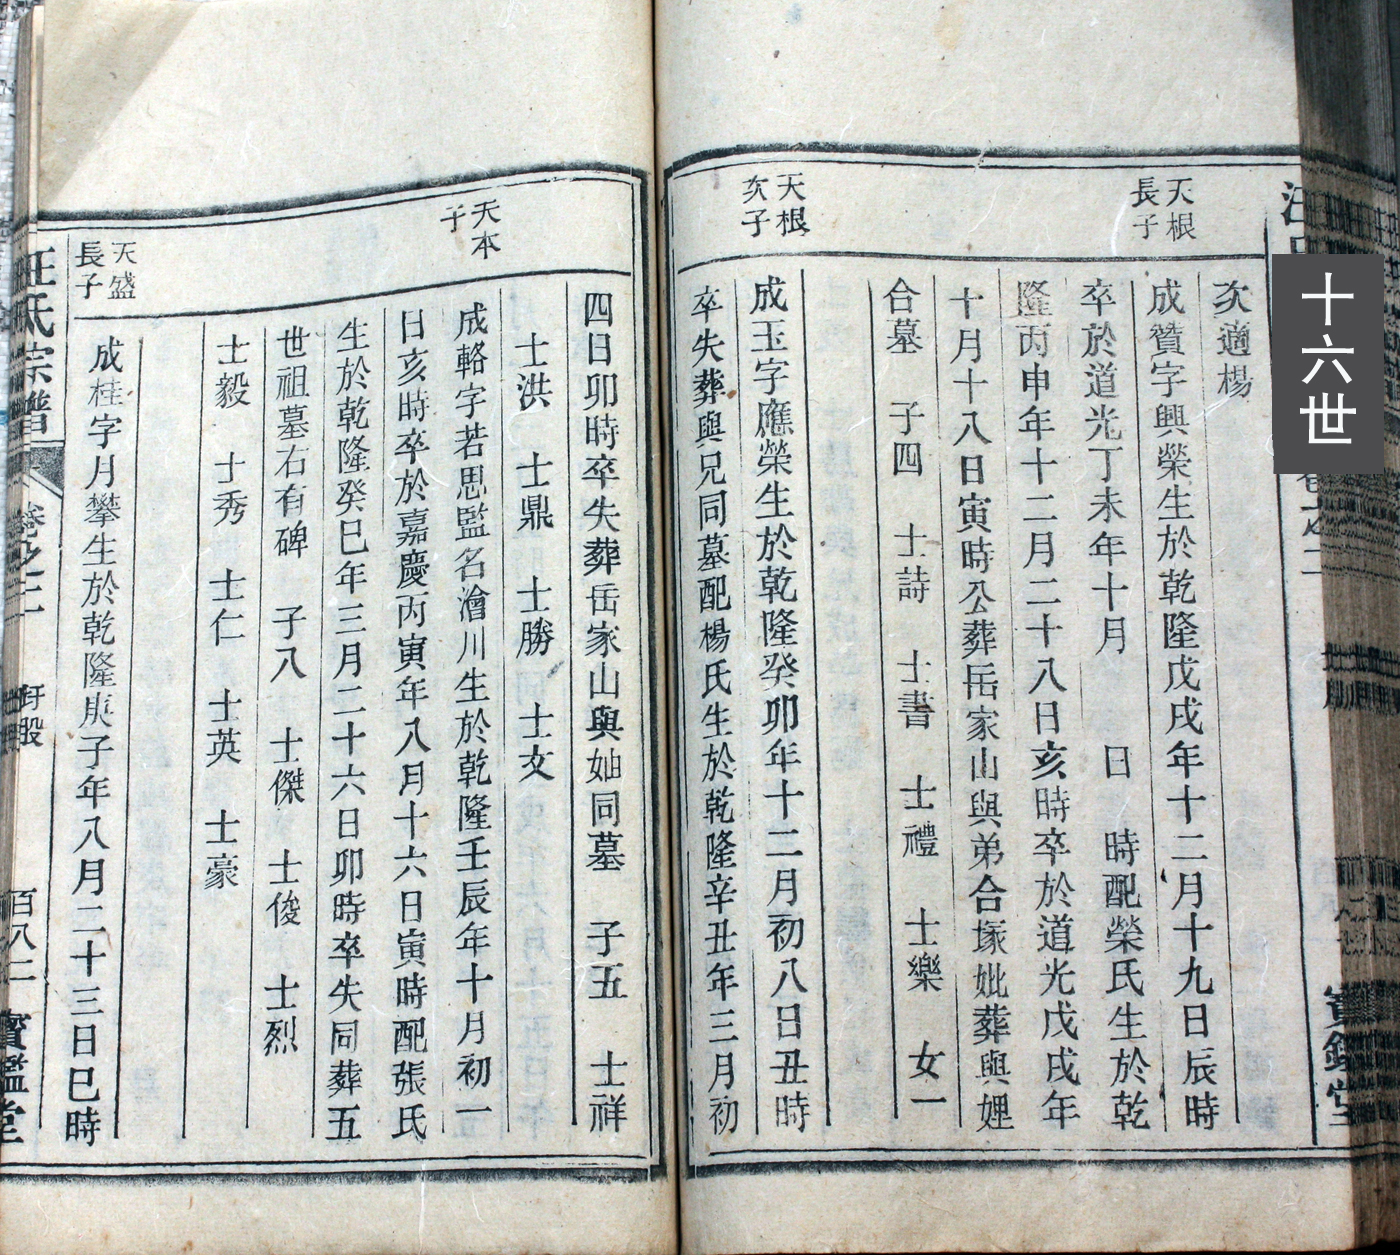 十六世
卷之二
次適楊
天根
長子
成贊字興榮生於乾隆戊戌年十二月十九日辰時
卒於道光丁未年十月 日 時配榮氏生於乾
隆丙申年十二月二十八日亥時卒於道光戊戌年
十月十八日寅時公葬岳家山與弟合塚妣葬與娌
合墓 子四 士詩 士書 士禮 士樂 女一
天根
次子
成玉字應榮生於乾隆癸卯年十二月初八日丑時
卒失葬與兄同墓配楊氏生於乾隆辛丑年三月初
四日卯時卒失葬岳家山與妯同墓 子五 士祥
士洪 士鼎 士勝 士文
天本
子
成輅字若思監名澮川生於乾隆壬辰年十月初一
日亥時卒於嘉慶丙寅年八月十六日寅時配張氏
生於乾隆癸巳年三月二十六日卯時卒失同葬五
世祖墓右有碑 子八 士傑 士俊 士烈
士毅 士秀 士仁 士英 士豪
天盛
長子
成桂字月攀生於乾隆庚子年八月二十三日巳時
汪氏宗譜 卷之二 百八二 寶鑑堂